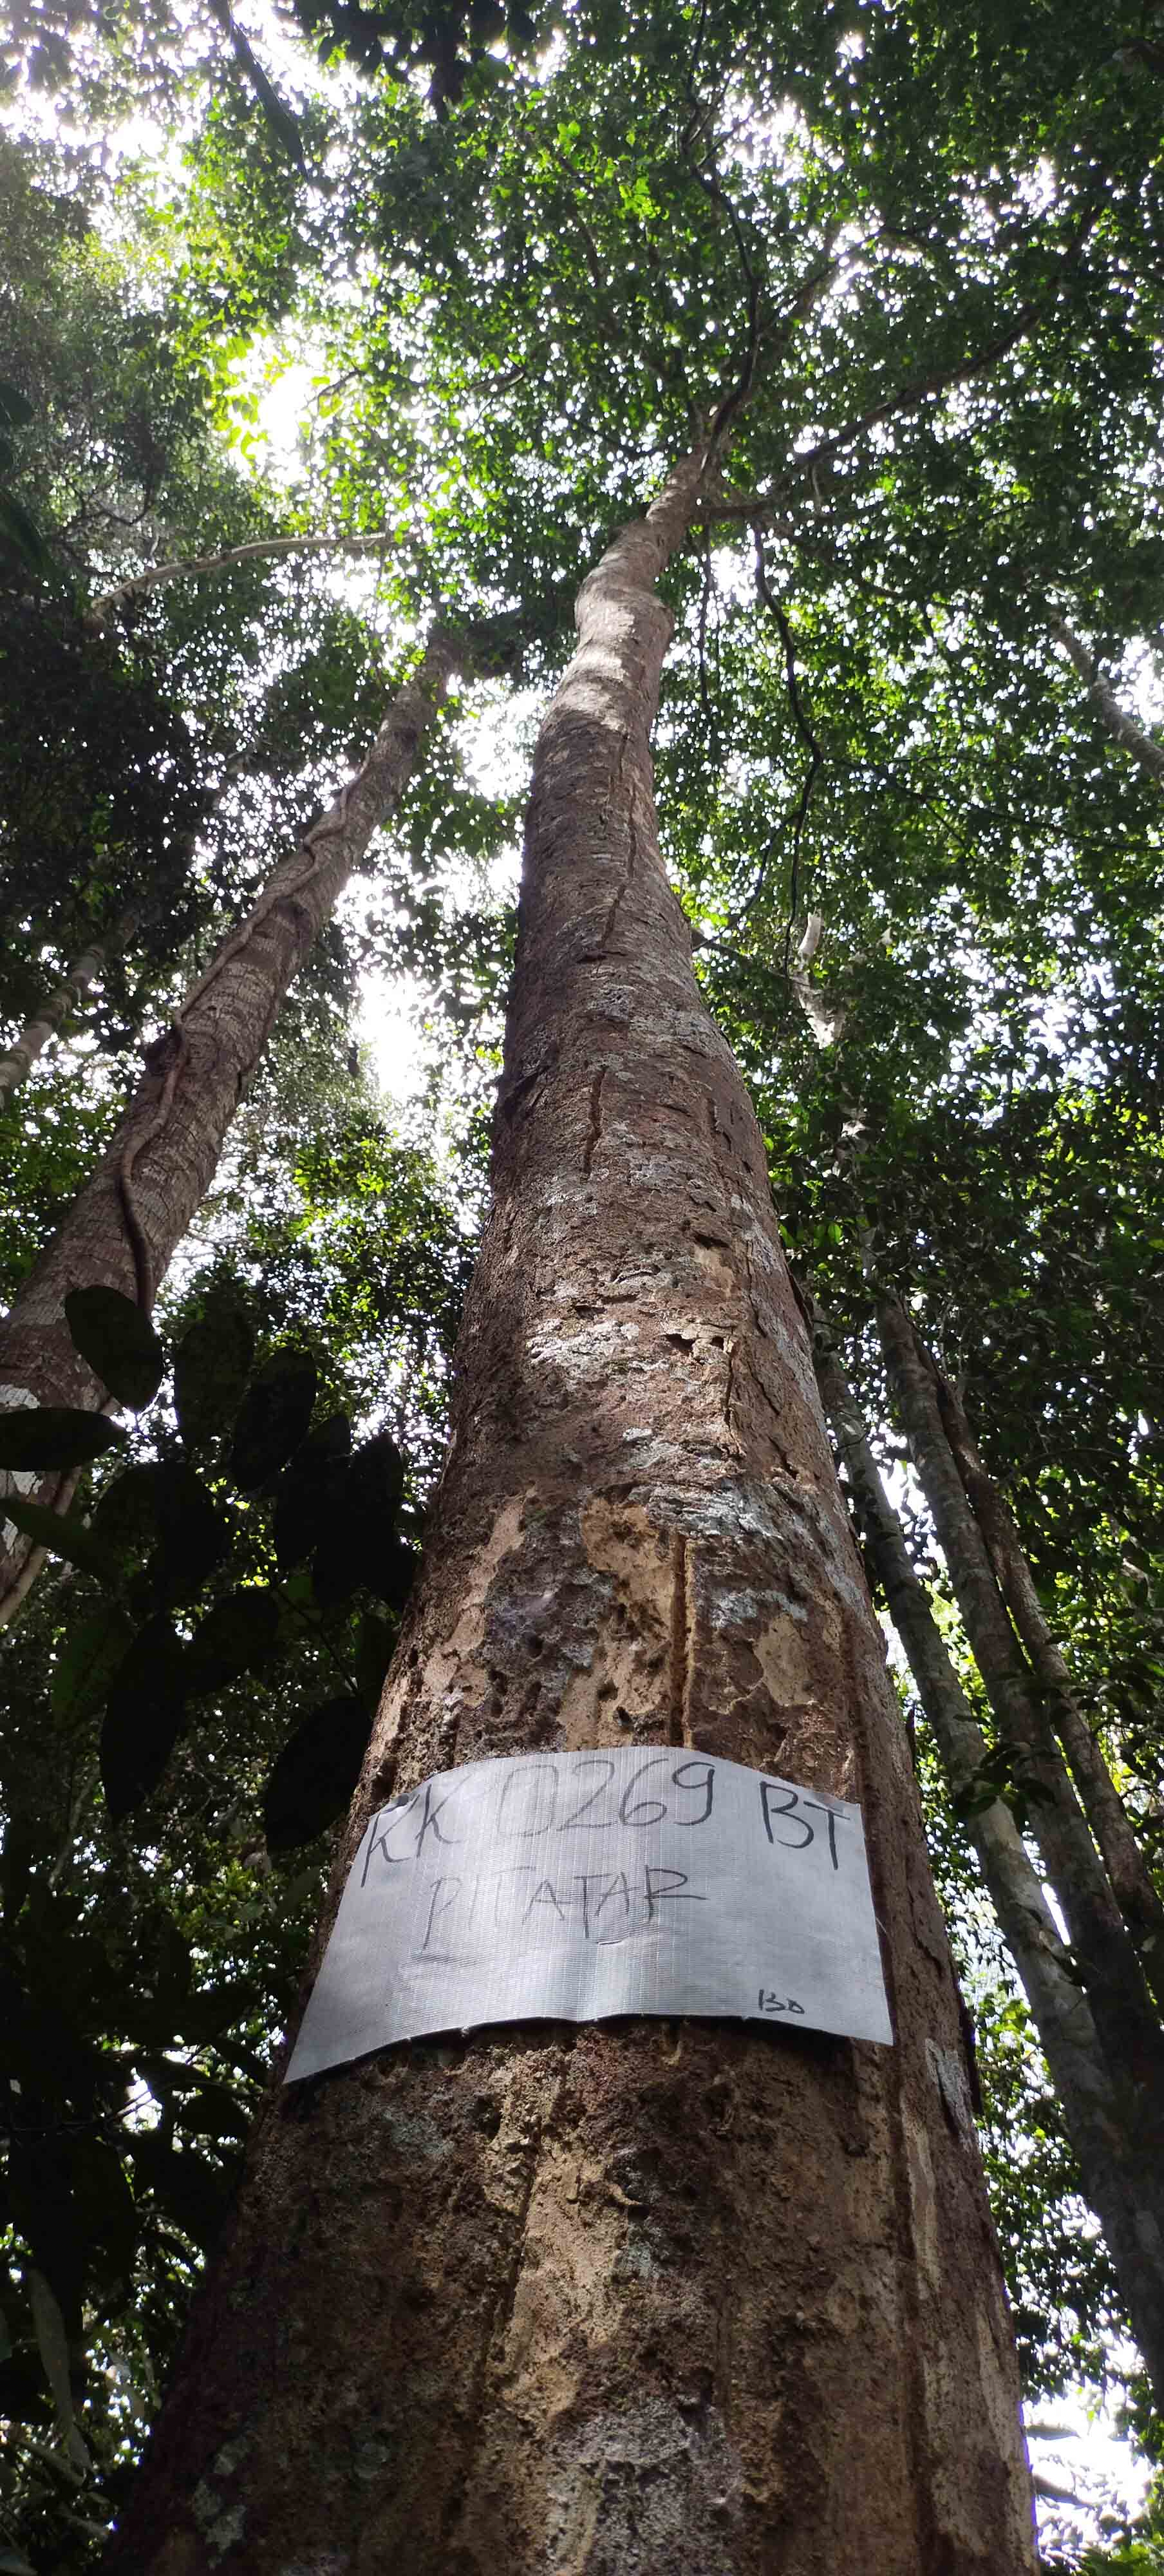 KK 0269 BT
PITATAR
130